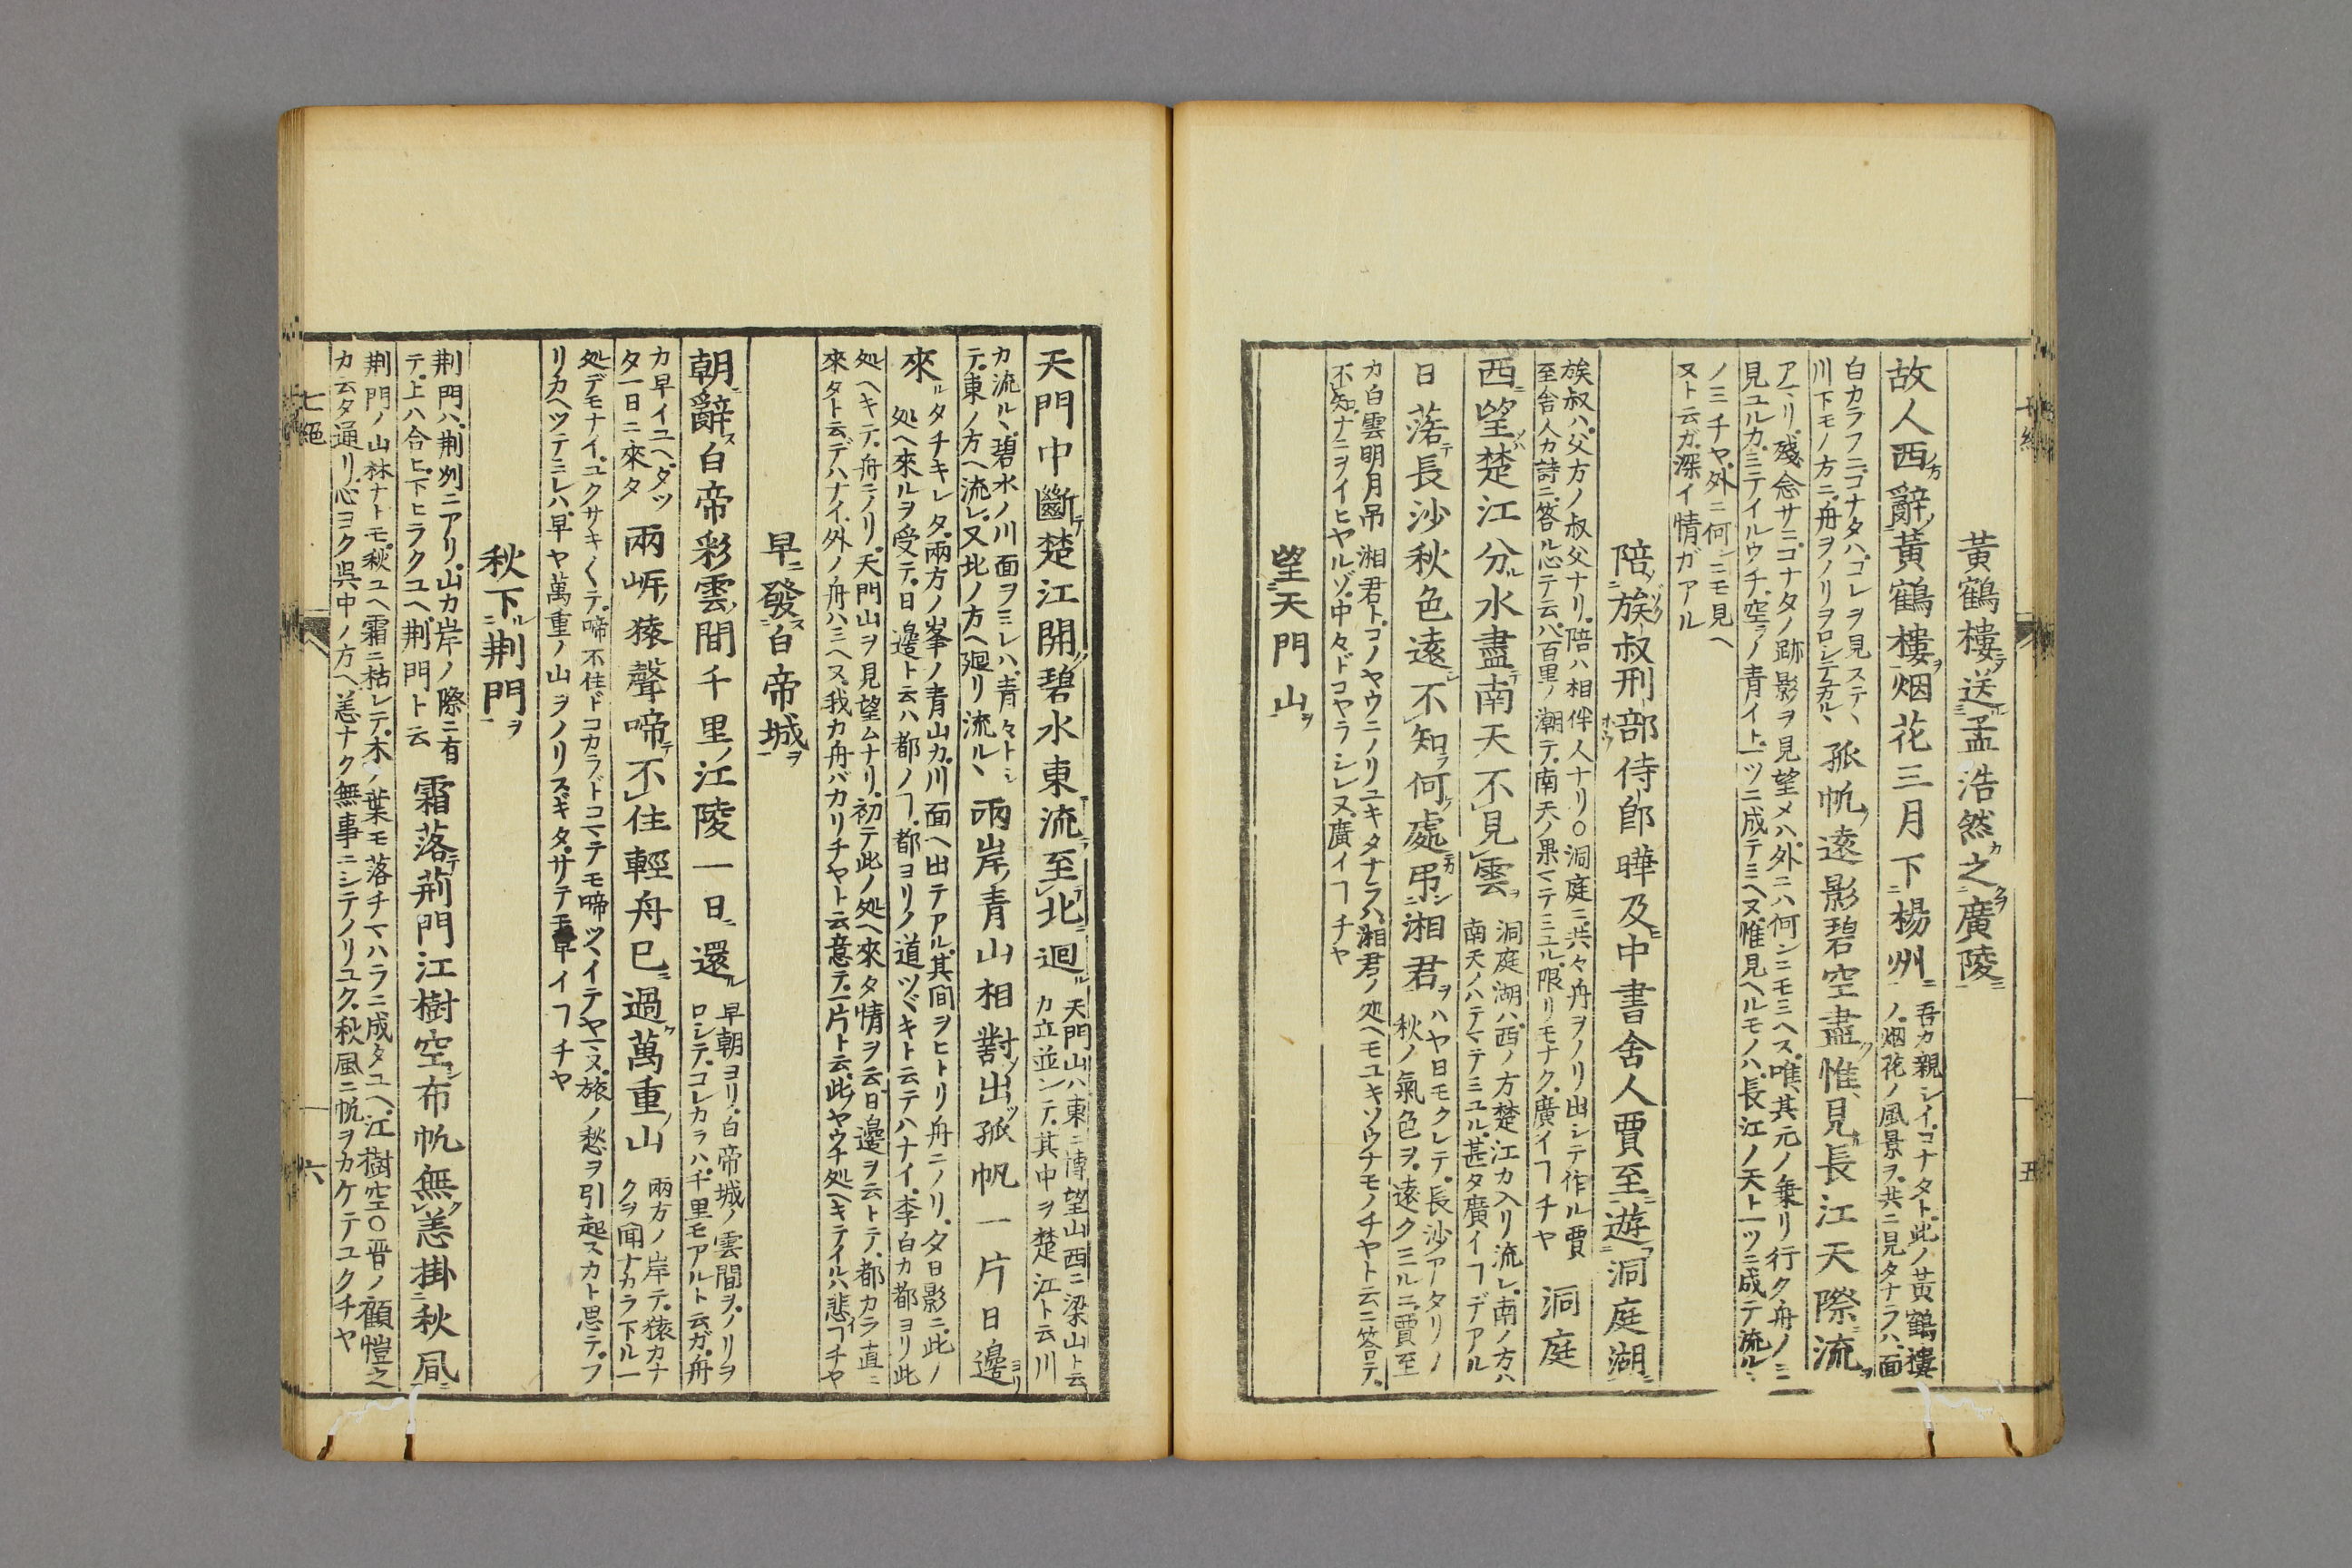 黃鶴樓送孟浩然之廣陵
故人西辭黃鶴樓烟花三月下楊州 吾カ親シイコナタト此ノ黃鶴樓ノ烟花ノ風景ヲ共ニ見タナラハ面
白カラフニコナタハコレヲ見ステヽ川下モノ方ニ舟ヲノリヲロシテ 孤帆遠影碧空盡惟見長江天際流
アヽリ殘念サニコナタノ跡影ヲ見望メハ外ニハ何ンニモミヘス唯其元ノ乗リ行ク舟ノミ見ユルカミテイルウチ空ラノ青イト一ツニ成テミヘヌ惟見ヘルモノハ長江ノ天ト一ツニ成テ流ル
ノミチヤ外ニ何ンニモ見ヘヌト云ガ深イ情ガアル
陪族叔刑部侍郎曄及中書舍人賈至遊洞庭湖
族叔ハ父方ノ叔父ナリ陪ハ相伴人ナリ○洞庭ニ共々舟ヲノリ出シテ作ル賈至舍人カ詩ニ答ル心テ云八百里ノ潮テ南天ノ果マテミユル限リモナク廣イヿチヤ 洞庭
西望楚江分水盡南天不見雲 洞庭湖ハ西ノ方楚江カ入リ流レ南ノ方ハ南天ノハテマテミユル甚タ廣イヿデアル
日落長沙秋色遠不知何處吊湘君 ハヤ日モクレテ長沙アタリノ秋ノ氣色ヲ遠クミルニ賈至
カ白雲明月吊湘君トコノヤウニノリユキタナラハ湘君ノ処ヘモユキソウナモノチヤト云ニ答テ不知ナニヲイヒヤルゾ中々ドコヤラシレヌ廣イヿチヤ
望天門山
天門中斷楚江開碧水東流至北廻 天門山ハ東ニ博望山西ニ梁山ト云カ立並ンテ其中ヲ楚江ト云川
カ流ルヽ碧水ノ川面ヲミレハ青々トシテ東ノ方ヘ流レ又北ノ方ヘ廻リ流ルヽ 兩岸青山相對出孤帆一片日邊
來 タチキレタ兩方ノ峯ノ青山カ川面ヘ出テアル其間ヲヒトリ舟ニノリ夕日影ニ此ノ処ヘ來ルヲ受テ日邊ト云ハ都ノヿ都ヨリノ道ツヾキト云テハナイ李白カ都ヨリ此
処ヘキテ舟ニノリ天門山ヲ見望ムナリ初テ此ノ処ヘ來タ情ヲ云日邊ヲ云トテ都カラ直ニ來タト云デハナイ外ノ舟ハミヘヌ我カ舟バカリチヤト云意テ一片ト云此ヤウナ処ヘキテイルハ悲イヿチヤ
早發白帝城
朝辭白帝彩雲間千里江陵一日還 早朝ヨリ白帝城ノ雲間ヲノリヲロシテコレカラハ千里モアルト云ガ舟
カ早イユヘダツタ一日ニ來タ 兩岍猿聲啼不住輕舟已過萬重山 兩方ノ岸テ猿カナクヲ聞ナカラ下ル一
処デモナイユクサキ〱テ啼不住ドコカラドコマテモ啼ツヽイテヤマヌ旅ノ愁ヲ引起スカト思テフリカヘツテミレハ早ヤ萬重ノ山ヲノリスギタサテ早イヿチヤ
秋下荆門
荆門ハ荆刕ニアリ山カ岸ノ際ニ有テ上ハ合ヒ下ヒラクユヘ荆門ト云 霜落荊門江樹空布帆無恙掛秋凨
荆門ノ山林ナトモ秋ユヘ霜ニ枯レテ木ノ葉モ落チマハラニ成タユヘ江樹空○晋ノ顧愷之カ云タ通リ心ヨク呉中ノ方ヘ恙ナク無事ニシテノリユク秋風ニ帆ヲカケテユクチヤ
七絕
六
五